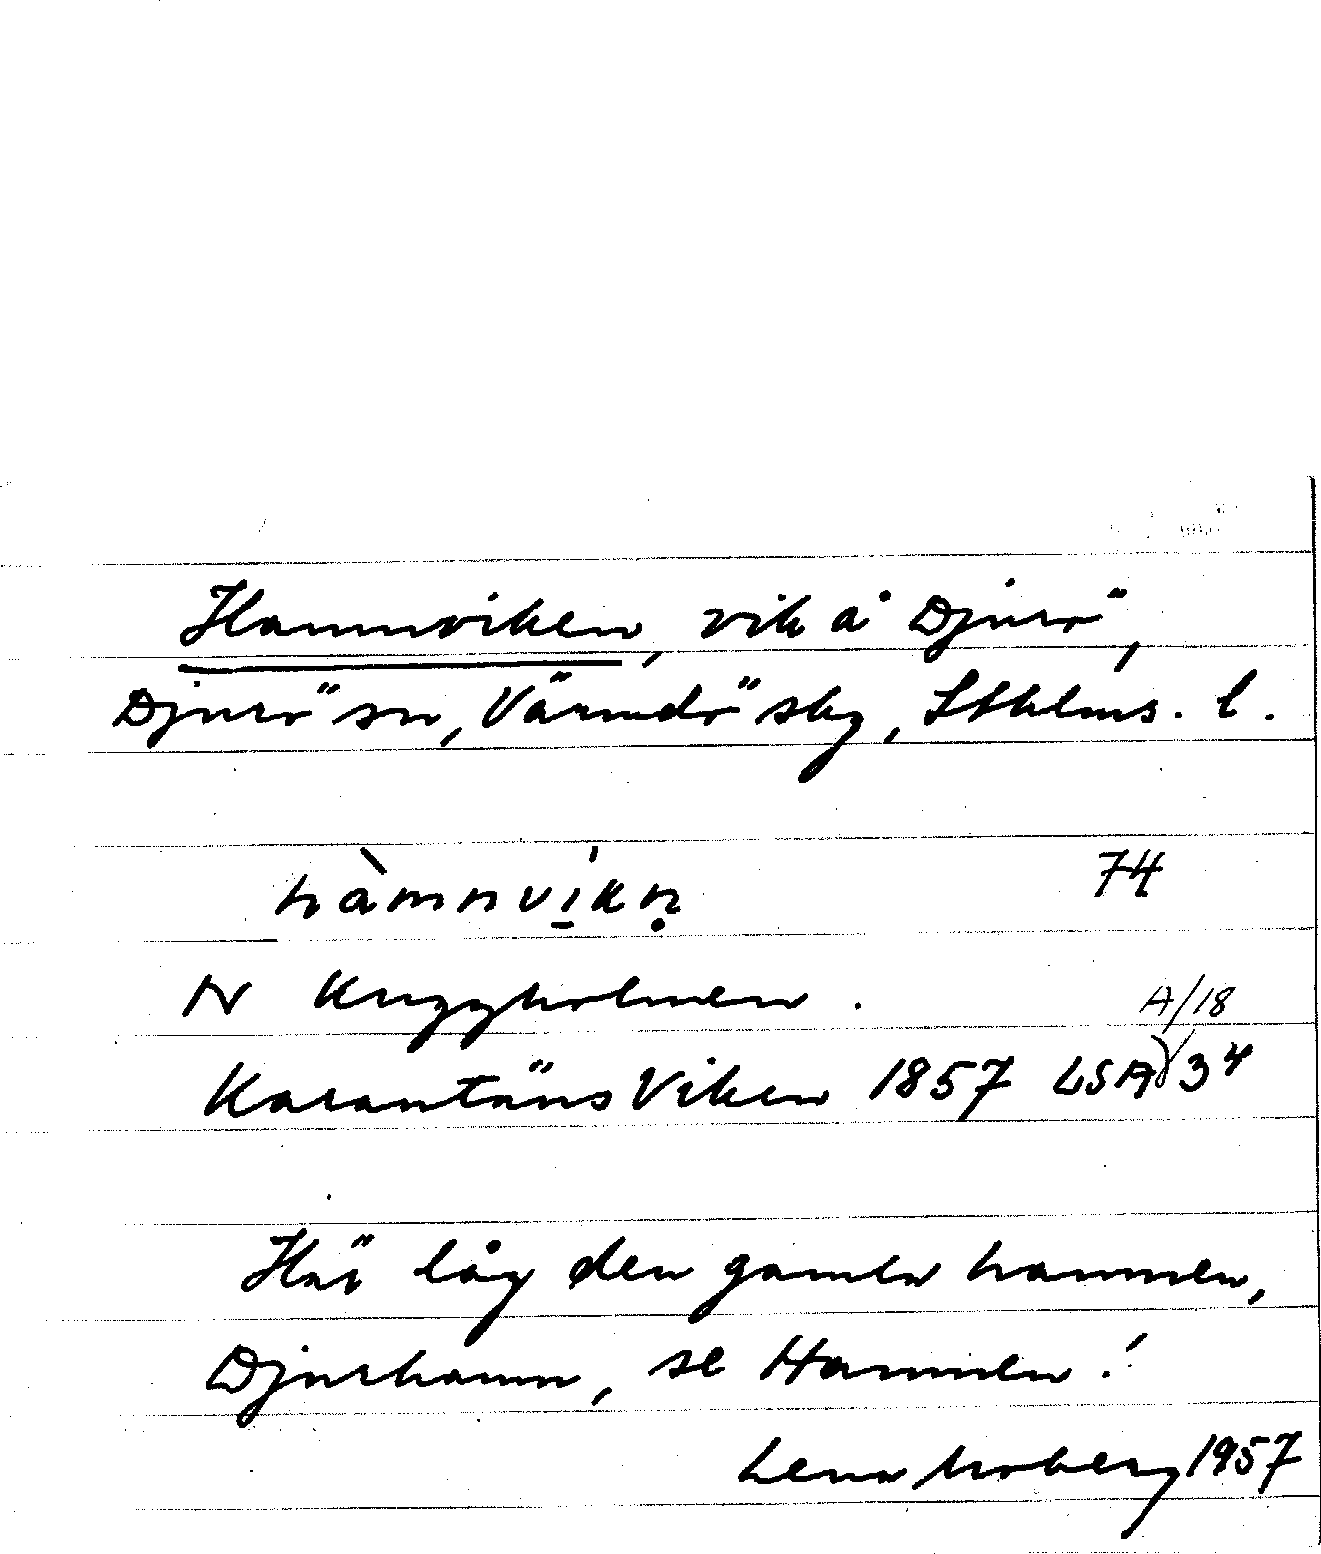 Hamnviken, vik å Djurö,
Djurö sn, Värmdö skg, Sthlms. l.
hàmnvi̱kṇ 74
N Kryggholmen.
A/18
KarantänsViken 1857 LSA 34
Här låg den gamla hamnen,
Djurhamn, se Hamnen!
Lena Moberg 1957